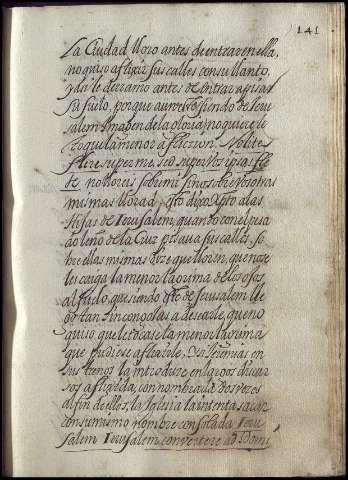 141
La Ciudad lloro antes de entrar en ella,
no quiso afligir sus calles con su llanto,
y assi le derramo antes de entrar a pisar
su suelo, porque aun vestosiendo de Jeru
salem Imagen de la gloria, no quiere le
toque la menor afliccion. Nolite
flere super me, sed super vos ipsas fle
te, no lloreis sobre mi sino sobre vosotras
mismas llorad, esto dixo Xpto a las
Hijas de Jerusalem, quando con el pesa
do leño de la Cruz pisava sus calles, so
bre ellas mismas dize que lloren, que no se
les caiga la menor lagrima de los ojos
al suelo, que siendo este de Jerusalem lle
go tan sin congojas a desearle, que no
quiso que le tocase la menor lagrima
que pudiese afearle, Jeremias en
sus trenos la introduze en largos discur
sos afligida, con nombrarla dos vezes
al fin de ellos, la Iglesia la intenta sacar
con su mismo nombre consolada Jeru
salem Jerusalem convertere ad Domi